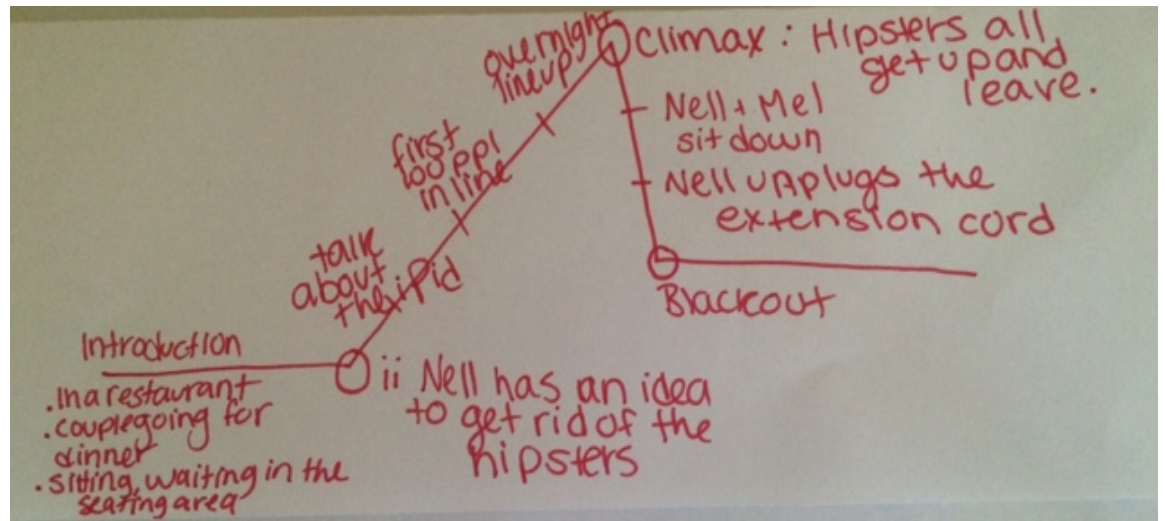 Introduction
.In a restaurant
.couple going for
dinner
.sitting, waiting in the
seating area
ii Nell has an idea
to get rid of the
hipsters
talk
about
the iPid
first
100 ppl
in line
overnight
lineup
Climax : Hipsters all
get up and
leave.
Nell + Mel
sit down
Nell unplugs the
extension cord
Blackout